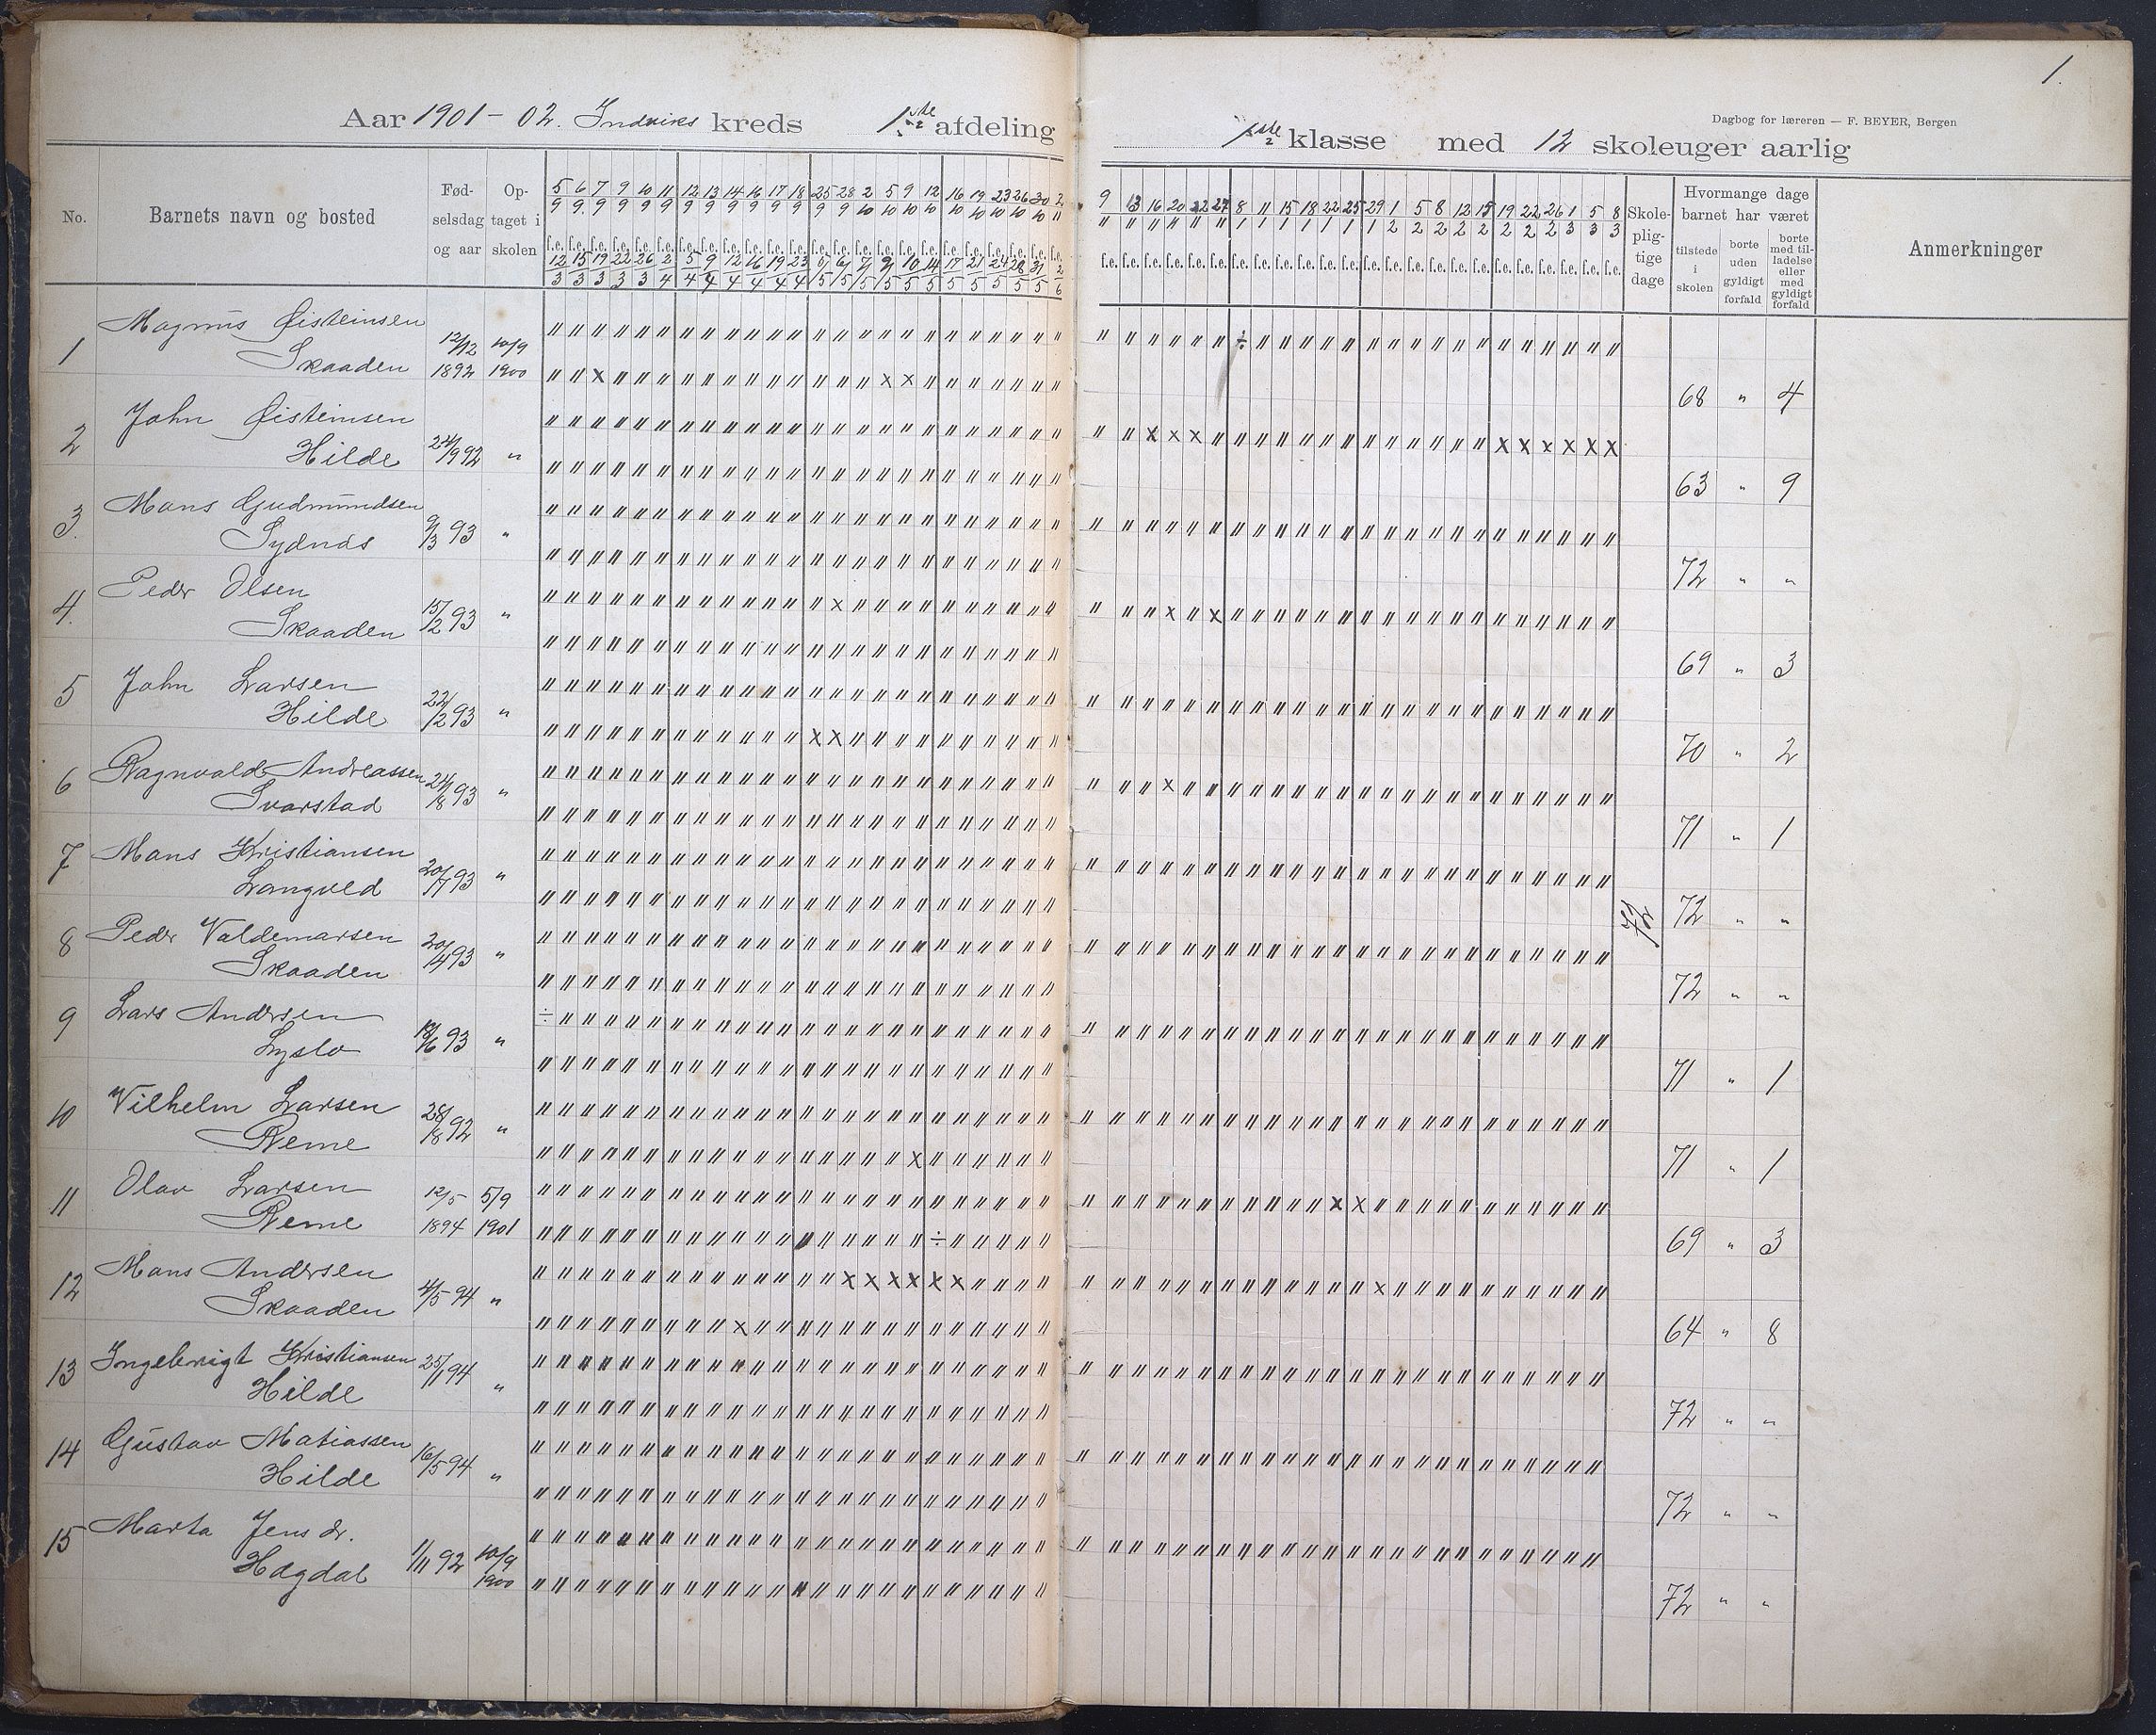 1.
Dagbog for læreren — F. BEYER, Bergen
Aar 1901 - 02. Indvikes kreds 1ste afdeling
1ste klasse med 12 skoleuger aarlig
No. Barnets navn og bosted Fødselsdag og aar Optaget i skolen
Skolepligtige dage
Hvormange dage barnet har været
tilstede i skolen
borte uden gyldigt forfald
borte med tilladelse eller med gyldigt forfald
Anmerkninger
5/9 6/9 7/9 9/9 10/9 11/9 12/9 13/9 14/9 16/9 17/9 18/9 25/9 28/9 2/10 5/10 9/10 12/10 16/10 19/10 23/10 26/10 30/10 2/11
9/11 13/11 16/11 20/11 22/11 27/11 8/1 11/1 15/1 18/1 22/1 25/1 29/1 1/2 5/2 8/2 12/2 15/2 19/2 22/2 26/2 1/3 5/3 8/3
12/3 15/3 19/3 22/3 26/3 2/4 5/4 9/4 12/4 16/4 19/4 23/4 6/5 7/5 9/5 10/5 14/5 17/5 21/5 24/5 28/5 31/5 2/6
1 Magnus Øisteinsen
Skaaden 12/12 1892 10/9 1900
68 " 4
2 John Øisteinsen
Hilde 24/9 92 "
63 " 9
3. Mons Gudmundsen
Sydnæs 9/3 93 "
72 " "
4. Peder Olsen
Skaaden 15/2 93 "
69 " 3
5 John Larsen
Hilde 22/2 93 "
70 " 2
6 Ragnvald Andreassen
Svarstad 24/8 93 "
71 " 1
7 Mons Kristiansen
Langveld 20/7 93 "
72
72 " "
8 Peder Valdemarsen
Skaaden 93 "
72 " "
9 Lars Andersen
Lyslo 93 "
71 " 1
10 Vilhelm Larsen
Reme 28/8 92 "
71 " 1
11 Olav Larsen
Reme 12/5 1894 5/9 1901
69 " 3
12 Mons Andersen
Skaaden 4/5 94 "
64 " 8
13 Ingebrigt Kristiansen
Hilde 25/1 94 "
72 " "
14 Gustav Matiassen
Hilde 16/5 94 "
72 " "
15 Marta Jens dr.
Hægdal 1/11 92 10/9 1900
72 " "